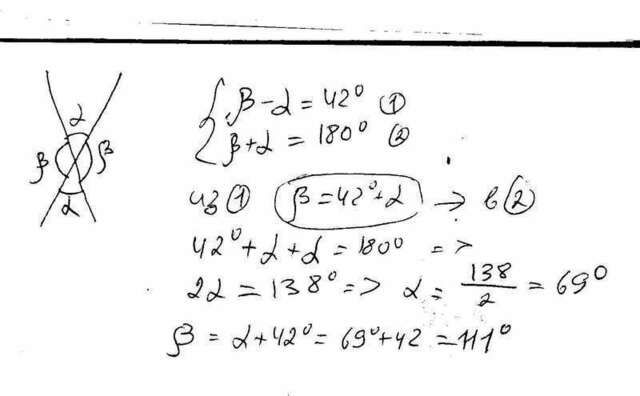 α
β β
α
β - α = 42° ①
β + α = 180° ②
из ① β = 42° + α → в ②
42° + α + α = 180° =>
2α = 138° => α = 138/2 = 69°
β = α + 42° = 69° + 42 = 111°